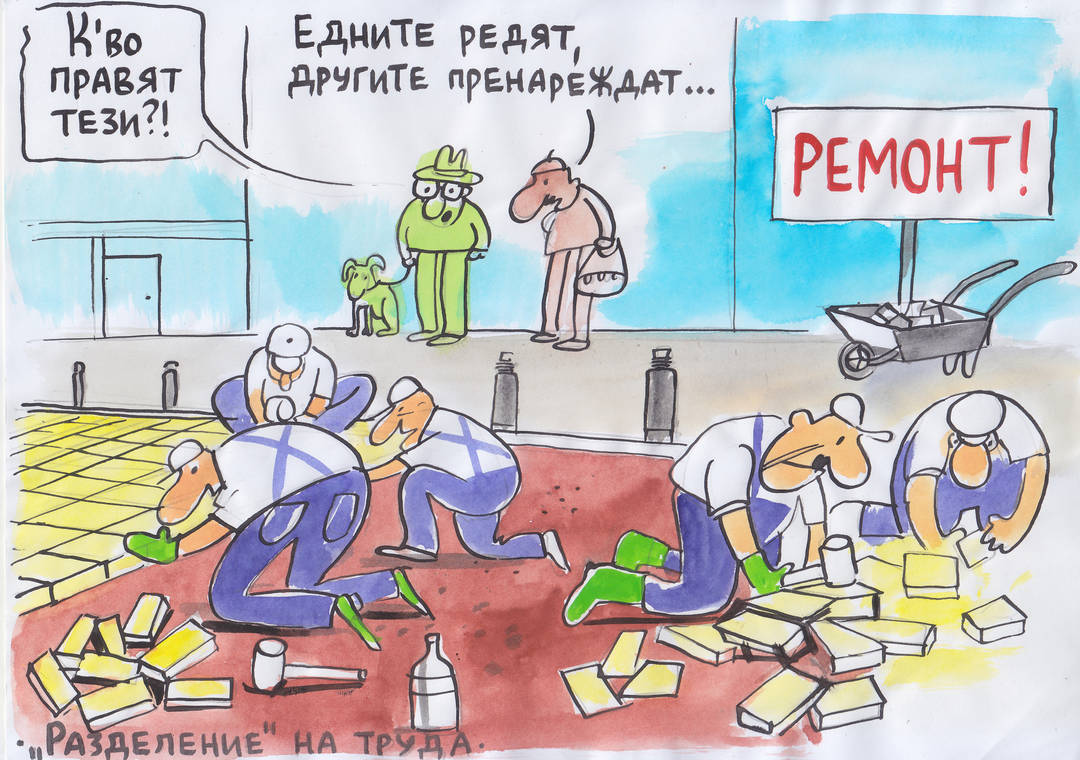 К'во
правят
тези?!
Едните редят,
другите пренареждат...
Ремонт!
• „Разделение" на труда.